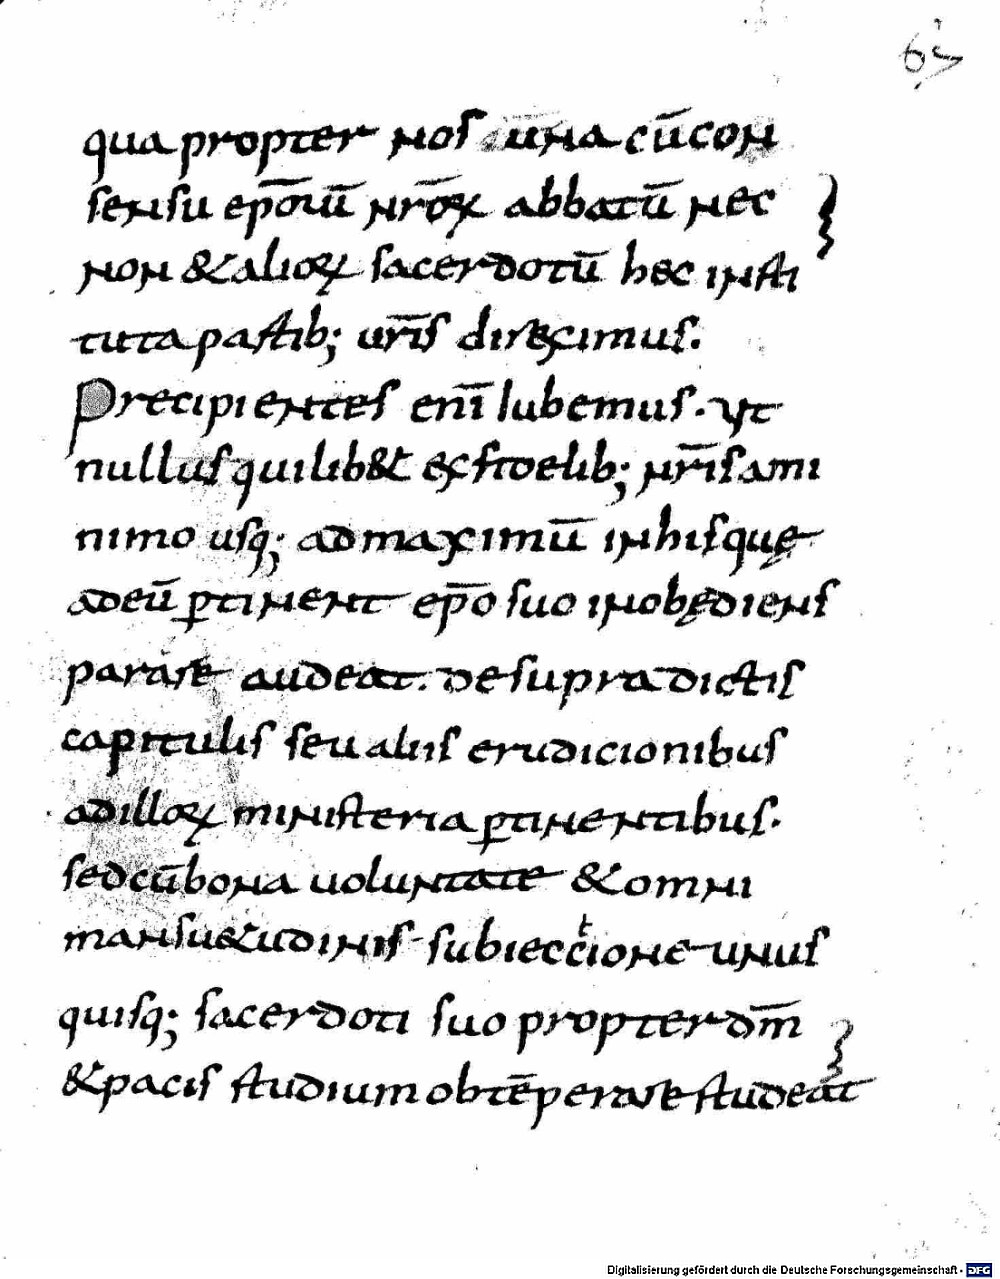 63
quapropter nos una cū con
sensu epōrū nr̄oꝝ abbatū nec
non & alioꝝ sacerdotū hec insti
tuta pastib; ur̄is direximus.
Precipientes enī Iubemus. ut
nullus quilib& ex fidelib; nr̄is ami
nimo usq; ad maximū in his quę
ad eū ꝑtinent ep̄o suo inobędiens
parare audeat. De supradictis
capitulis seu aliis erudicionibus
ad illoꝝ ministeria ꝑtinentibus.
sed cū bona uoluntate & omni
mansu&udinis subieccione unus
quisq; sacerdoti suo propter dm̄
& pacis studium obtēperare studeat
Digitalisierung gefördert durch die Deutsche Forschungsgemeinschaft - DFG